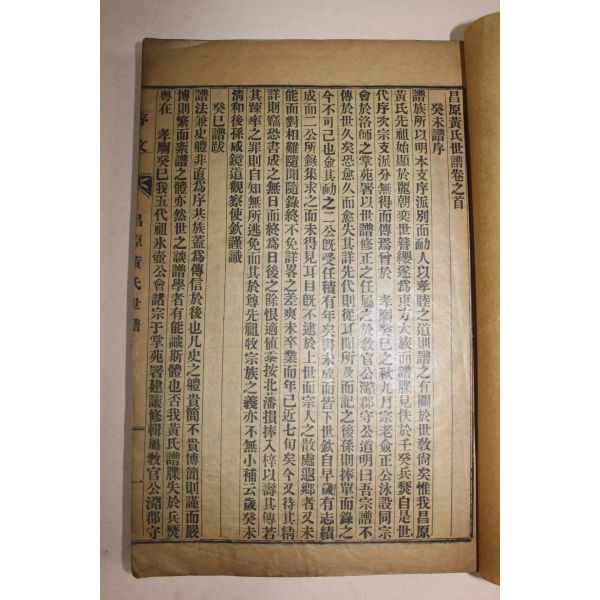 昌原黃氏世譜卷之首
癸未譜序
譜族所以明本支序派別而勸人以孝睦之道則譜之有關於世敎尙矣惟我昌原
黃氏先祖始顯於麗朝奕世簪纓遂爲東方大族而譜牒見佚於壬癸兵燹自是世
代序次宗支派分無得而傳焉曾於 孝廟癸巳之秋九月宗老僉正公泳設同宗
會於洛師之掌苑署以世譜修正之任屬之於敎官公潞郡守公道明曰吾宗譜不
傳於世久矣恐愈久而愈失其詳先代則從耳聞所及而記之後孫則捧單而錄之
今不可已也僉其勗之二公旣受任積有年矣書未成而皆下世欽自早歲有志續
成而二公所錄集求之而未得見耳目旣不逮於上世而宗人之散處遐鄕者又未
能面對相難隨聞隨錄終不免詳畧之差爽未卒業而年已近七旬矣今又待其精
詳則竊恐書成之無日而終爲日後之餘恨適値忝按北藩損捧入梓以壽其傳若
其踈率之罪則自知無所逃免而其於尊先祖牧宗族之義亦不無小補云歲癸未
淸和後孫咸鏡道觀察使欽謹識
癸巳譜跋
譜法兼史軆非直爲序共族蓋爲傳信於後也凡史之軆貴簡不貴博簡則謹而嚴
博則繁而紊譜之體亦然世之談譜學者有能識斯體也否我黃氏譜牒失於兵燹
粤在 孝廟癸巳我五代祖氷壺公會諸宗于掌苑署建議修輯屬敎官公潞郡守
序文
昌原黃氏世譜
一